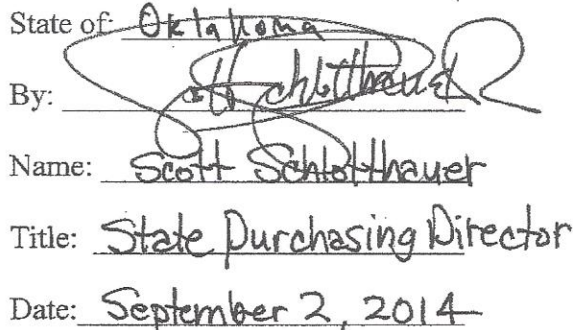 State of: Oklahoma
By: Scott Schlotthauer
Name: Scott Schlotthauer
Title: State Purchasing Director
Date: September 2, 2014